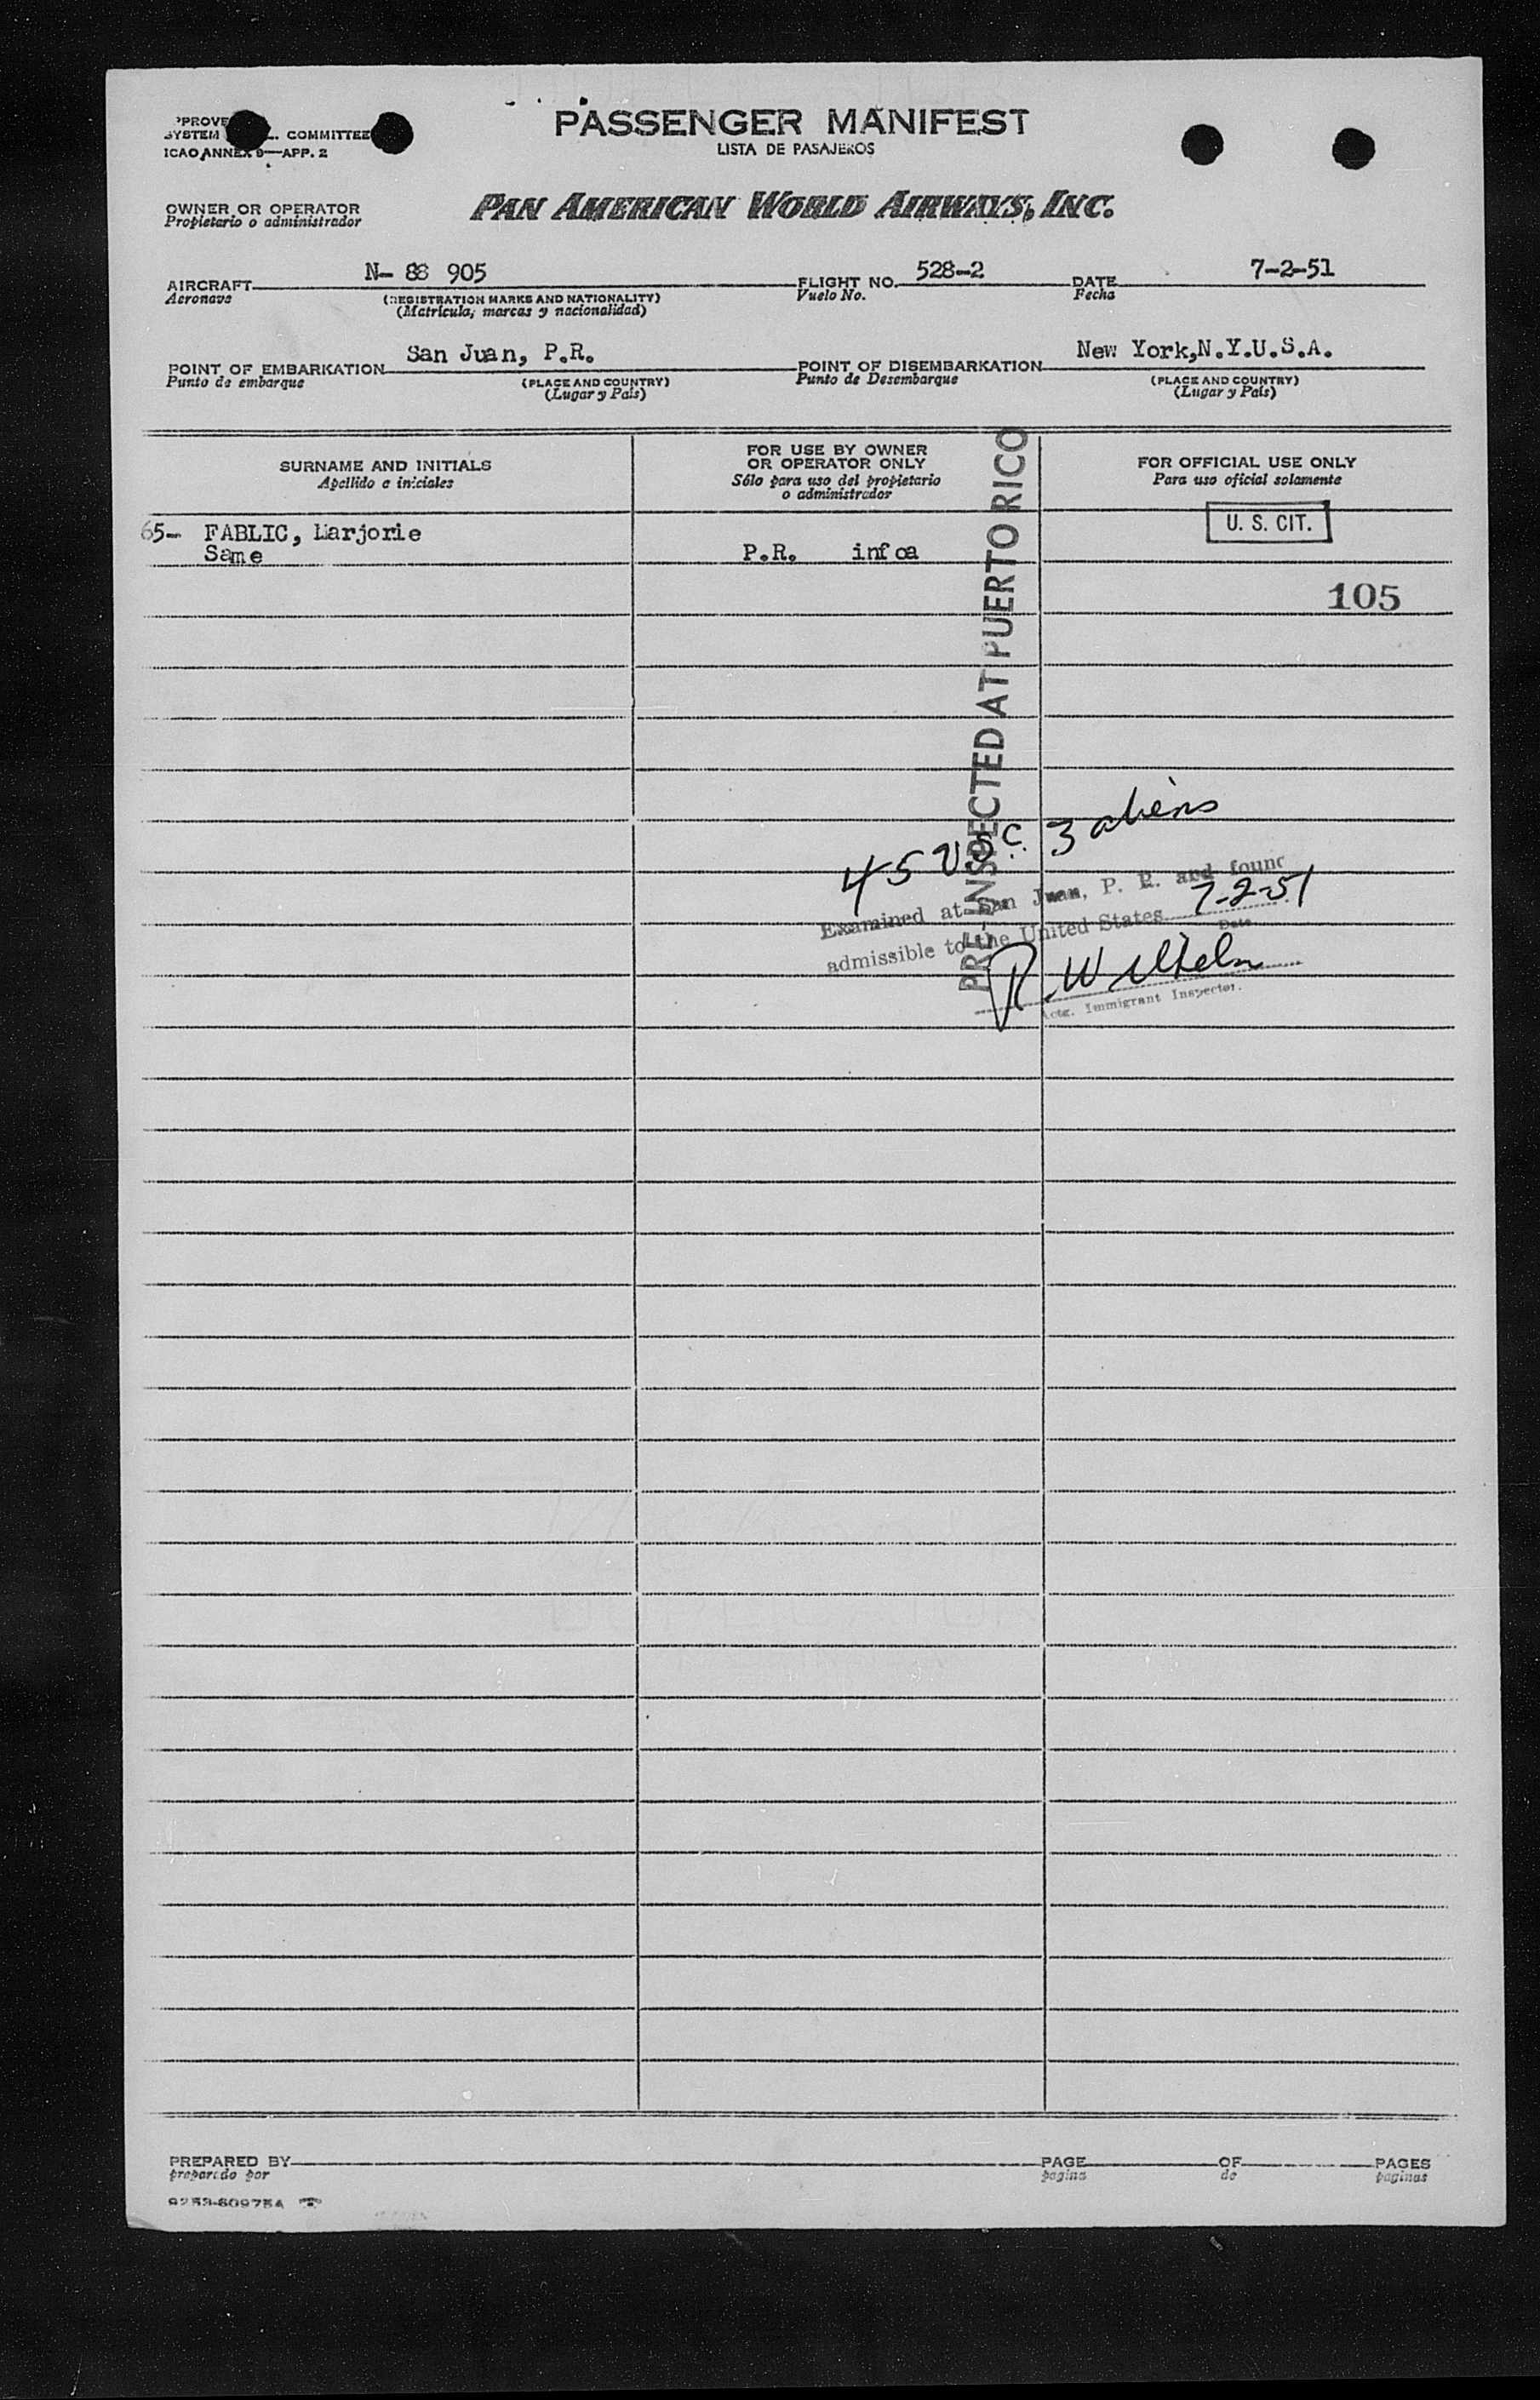 PASSENGER MANIFEST
LISTA DE PASAJEROS
SYSTEM COMMITTEE
ICAO ANNEX 9—APP. 2
OWNER OR OPERATOR
Propietario o administrador
PAN AMERICAN WORLD AIRWAYS, INC.
AIRCRAFT N- 88 905 FLIGHT NO. 528-2 DATE 7-2-51
Aeronave (REGISTRATION MARKS AND NATIONALITY) Vuelo No. Fecha
(Matrícula, marcas y nacionalidad)
POINT OF EMBARKATION San Juan, P.R. POINT OF DISEMBARKATION New York,N.Y.U.S.A.
Punto de embarque (PLACE AND COUNTRY) Punto de Desembarque (PLACE AND COUNTRY)
(Lugar y País) (Lugar y País)
SURNAME AND INITIALS
Apellido e iniciales
FOR USE BY OWNER
OR OPERATOR ONLY
Sólo para uso del propietario
o administrador
FOR OFFICIAL USE ONLY
Para uso oficial solamente
65- FABLIC, Marjorie
U. S. CIT.
Same P.R. infoa
105
PRE-INSPECTED AT PUERTO RICO
45 USC 3 aliens
Examined at San Juan, P. R. and found
admissible to the United States 7-2-51
Date
R. Wilhelm
Actg. Immigrant Inspector.
PREPARED BY PAGE OF PAGES
preparado por página de páginas
9253-60975A